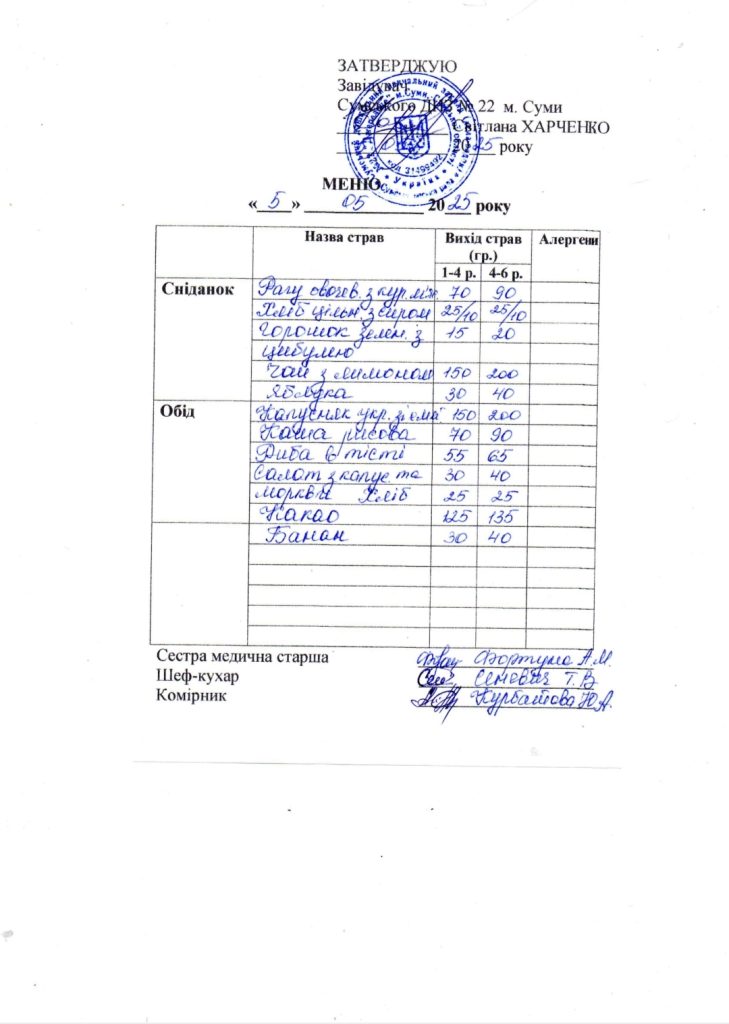 ЗАТВЕРДЖУЮ
Завідувач
Сумського ДНЗ № 22 м. Суми
Світлана ХАРЧЕНКО
2025 року
код 31499492
Україна
МЕНЮ
« 5 » 05 2025 року
Назва страв Вихід страв (гр.) Алергени
1-4 р. 4-6 р.
Сніданок Рагу овочев. з кур. м'яс. 70 90
Хліб цільн. з сиром 25/10 25/10
Горошок зелен. з 15 20
цибулею
Чай з лимоном 150 200
Яблука 30 40
Обід Капусняк укр. зі сма 150 200
Каша рисова 70 90
Риба в тісті 55 65
Салат з капус. та 30 40
моркви Хліб 25 25
Какао 125 135
Банан 30 40
Сестра медична старша Фортуна А.М.
Шеф-кухар Семевич Т.В
Комірник Курбатова Ю.А.